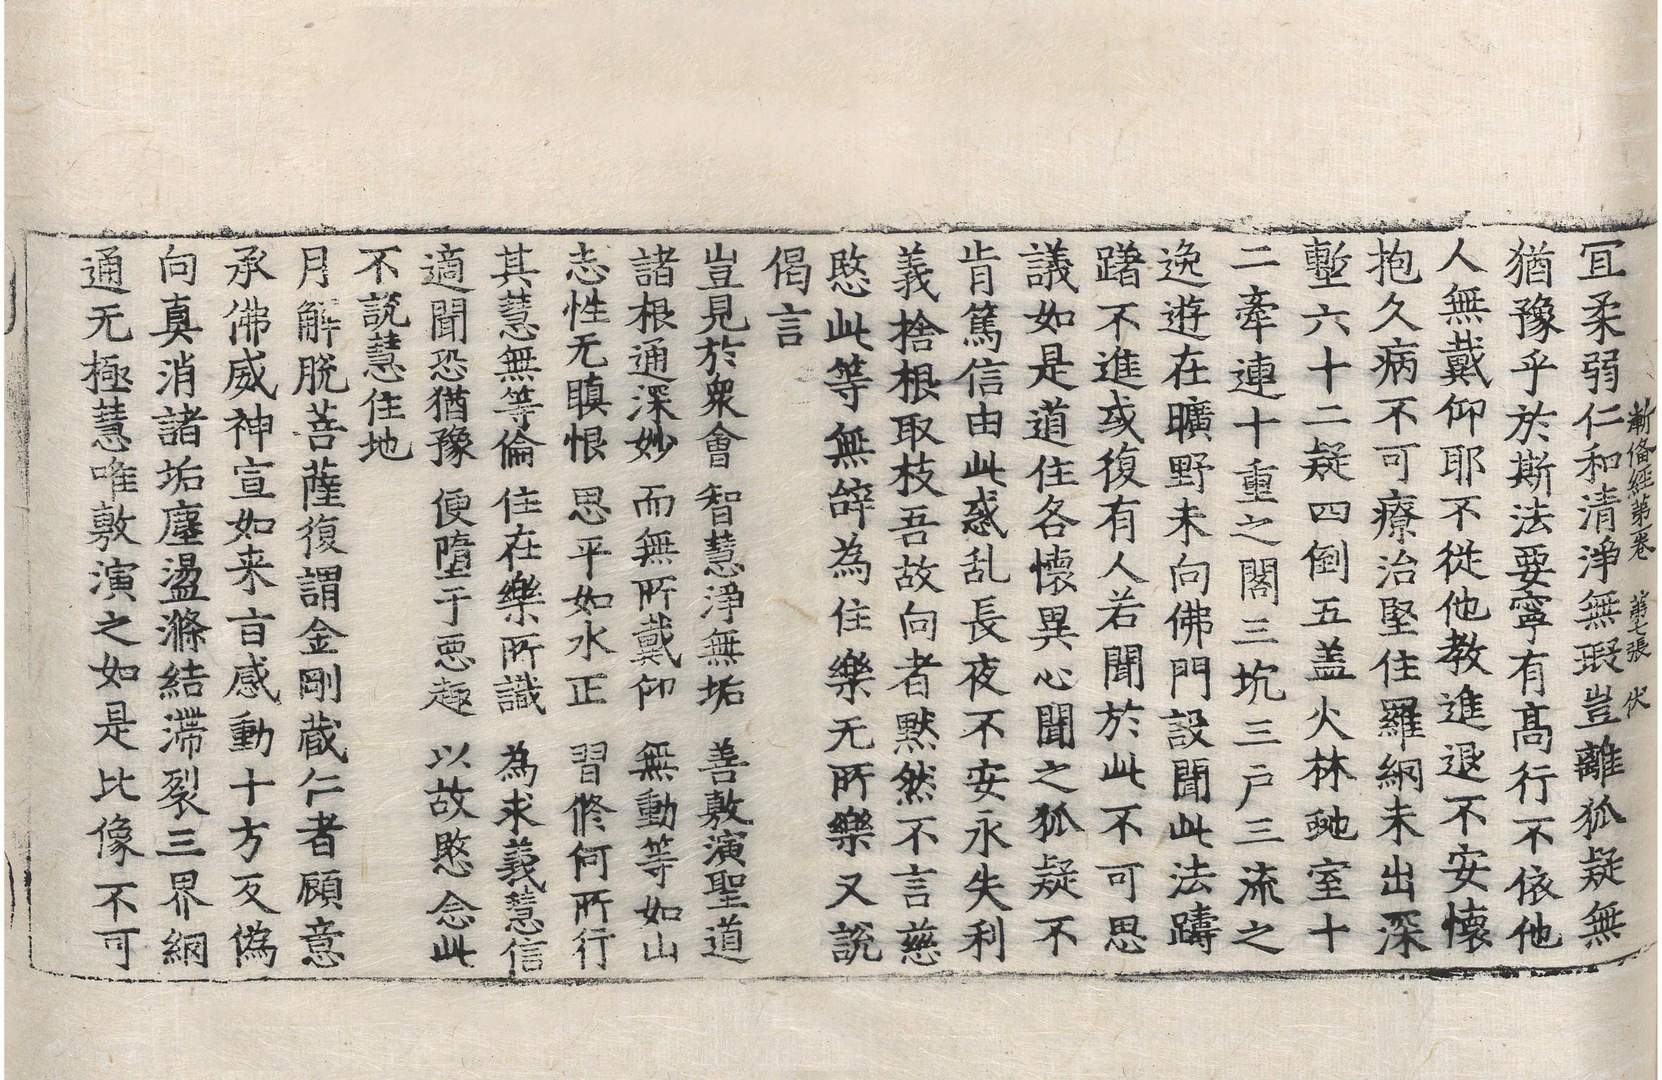 漸偹經第一卷 第七張 伏
冝柔弱仁和清淨無瑕豈離狐疑無
猶豫乎於斯法要寧有高行不依他
人無戴仰耶不從他教進退不安懷
抱久病不可療治堅住羅網未出深
塹六十二疑四倒五盖火林虵室十
二牽連十重之閣三坑三户三流之
逸遊在曠野未向佛門設聞此法躊
躇不進或復有人若聞於此不可思
議如是道住各懷異心聞之狐疑不
肯篤信由此惑乱長夜不安永失利
義捨根取枝吾故向者默然不言慈
愍此等無辝為住樂无所樂又說
偈言
豈見於衆會 智慧淨無垢 善敷演聖道
諸根通深妙 而無所戴仰 無動等如山
志性无瞋恨 思平如水正 習修何所行
其慧無等倫 住在樂所識 為求義慧信
適聞恐猶豫 便墮于惡趣 以故愍念此
不說慧住地
月解脫菩薩復謂金剛藏仁者願意
承佛威神宣如来言感動十方反偽
向真消諸垢塵盪滌結滯裂三界網
通无極慧唯敷演之如是比像不可